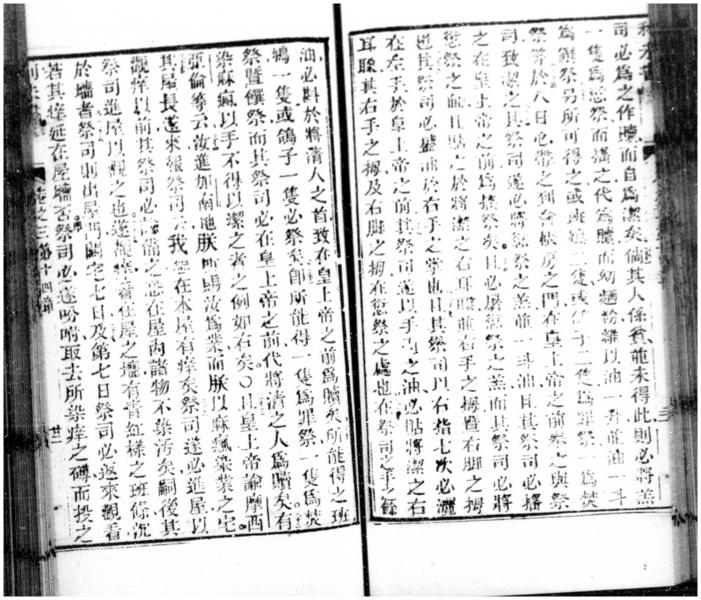 司必為之作贖而自為潔矣倘其人係貧龍未得此則必將羔
一隻為愆祭而搖之代為贖而幼麵粉雜以油一升並油一斗
為饌祭另所可得之或班鳩二隻或鴿子二隻為罪祭一為焚
祭等於八日必帶之到會帳房之門在皇上帝之前祭之與祭
司致潔之其祭司遂必將愆祭之羔並一斗油且其祭司必搖
之在皇上帝之前為搖祭矣且必屠愆祭之羔而其祭司必將
愆祭之血且點之於將潔之右耳聸並右手之拇暨右脚之拇
也其祭司必搲油於右手之掌也且其祭司以右指七次必灑
在左手於皇上帝之前其祭司遂以手內之油必貼將潔之右
耳聸其右手之拇及右脚之拇在愆祭之處也在祭司之手之餘
油必斟於將清人之首致在皇上帝之前為贖矣所能得之班
鳩一隻或鴿子一隻必祭矣卽所能得一隻為罪祭一隻為焚
祭暨饌祭而其祭司必在皇上帝之前代將清之人為贖矣有
染痳瘋以手不得以潔之者之例如右矣〇且皇上帝諭摩西
亞倫等云汝進如南地朕所賜汝為業而朕以痳瘋染業之宅
其屋長遂來報祭司云我 在本屋有痒矣祭司遂必進屋以
觀痒以前其祭司必 備之恐在屋內諸物不染污矣嗣後其
祭司進屋以觀之也遂觀痒若在屋之墻有青紅樣之班條沉
於墻者祭司則出屋門關宅七日及第七日祭司必返來觀看
若其痒延在屋墻 祭司必遂吩咐取去所染痒之磚而投之
卷之三 第十四章 廿二